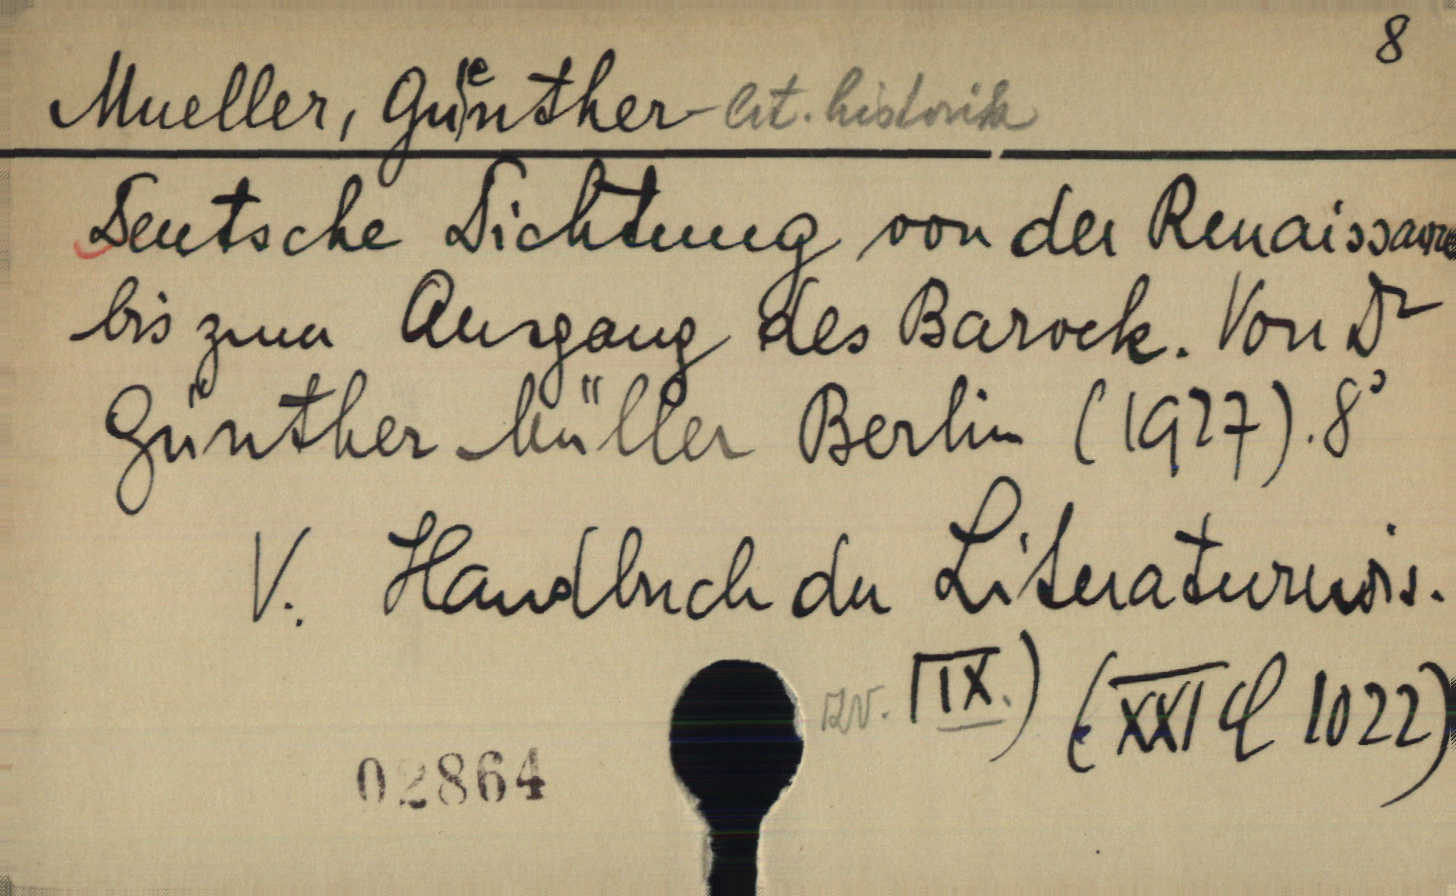 8
Mueller, Günther - lit. historik
Deutsche Dichtung von der Renaissance
bis zum Ausgang des Barock. Von Dr
Günther Müller Berlin (1927). 8°
V. Handbuch der Literaturwis.
zv. IX.) (XXI 1022)
02864